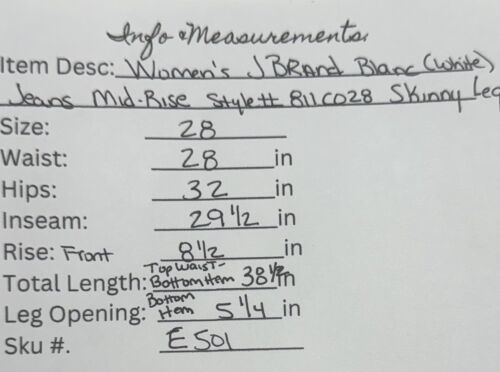 Info & Measurements.
Item Desc: Women's J BRAND Blanc (White)
Jeans Mid-Rise Style# 811C028 Skinny Leg
Size: 28
Waist: 28 in
Hips: 32 in
Inseam: 29 1/2 in
Rise: Front 8 1/2 in
Total Length: Top Waist- Bottom Hem 38 1/2 in
Leg Opening: Bottom Hem 5 1/4 in
Sku #. E501